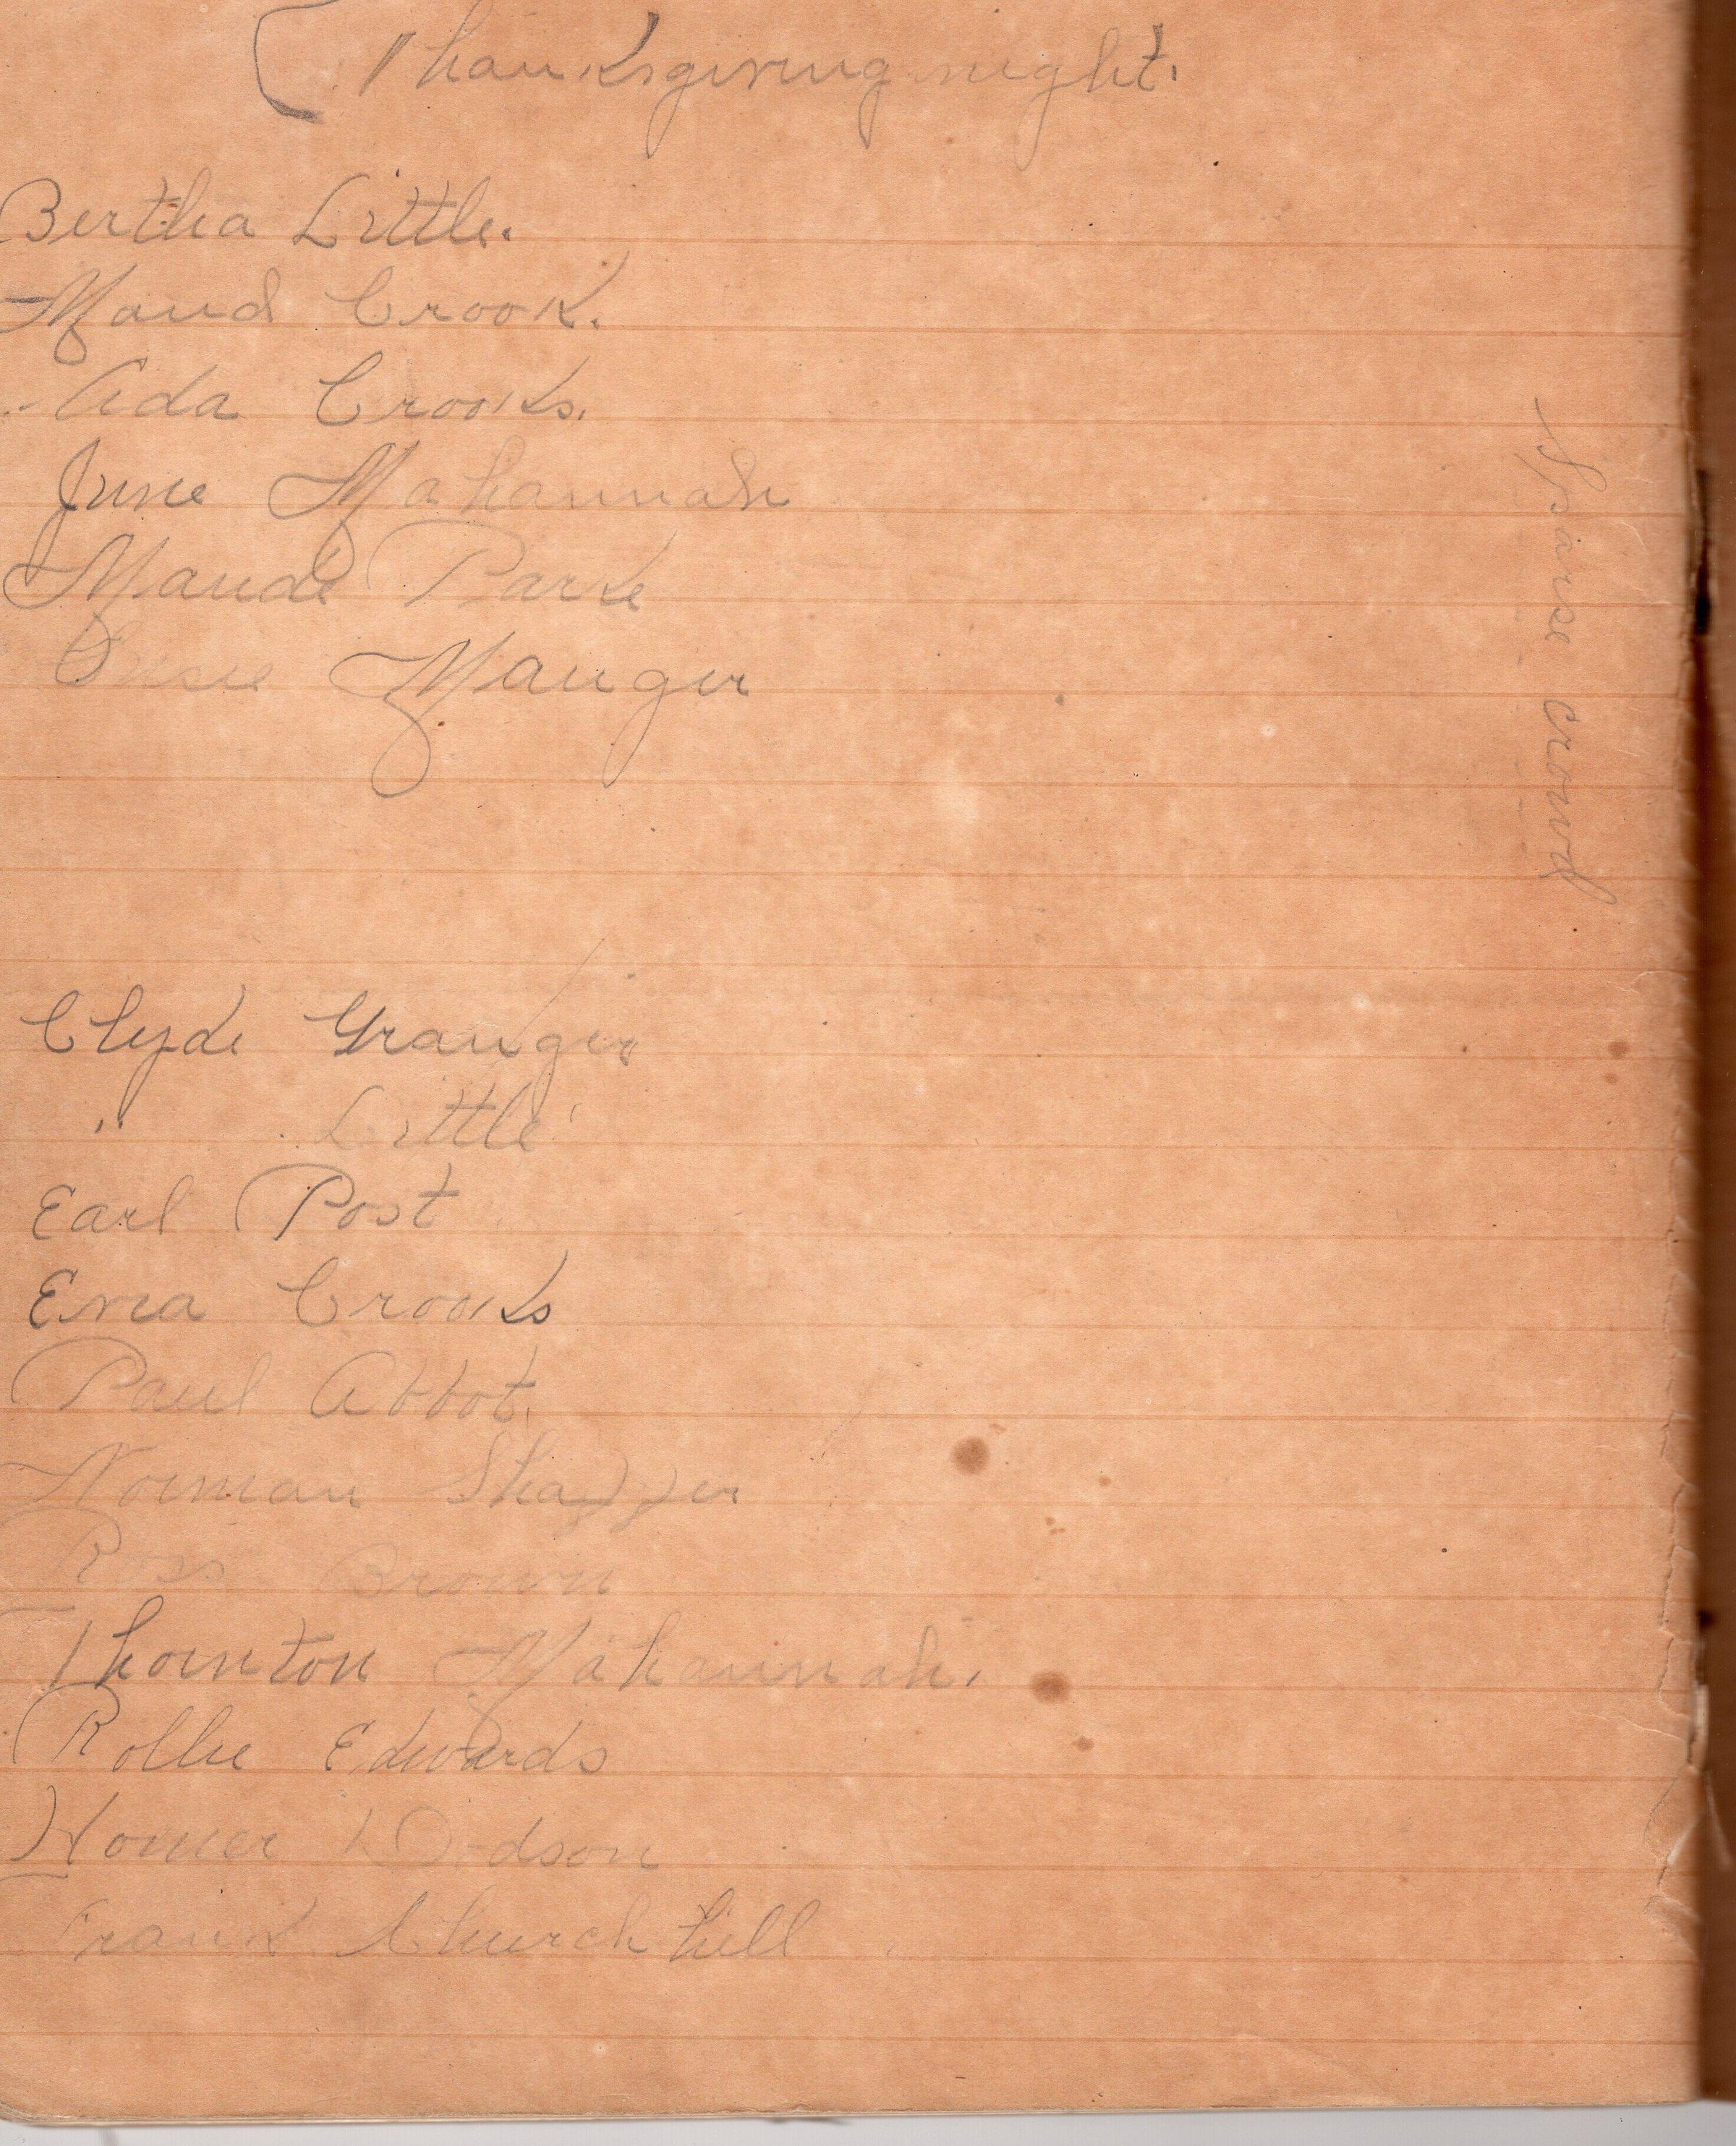 Thanksgiving night.
Bertha Little.
Maud Crook.
Ada Crooks.
June Mahannah
Maude Parke
Susie Mauger
Sparse crowd
Clyde Granger
" Little
Earl Post
Erva Crooks
Paul Abbot.
Norman Shaffer
Ross Brown
Thornton Mahannah.
Rollie Edwards
Homer Dodson
Frank Churchhill